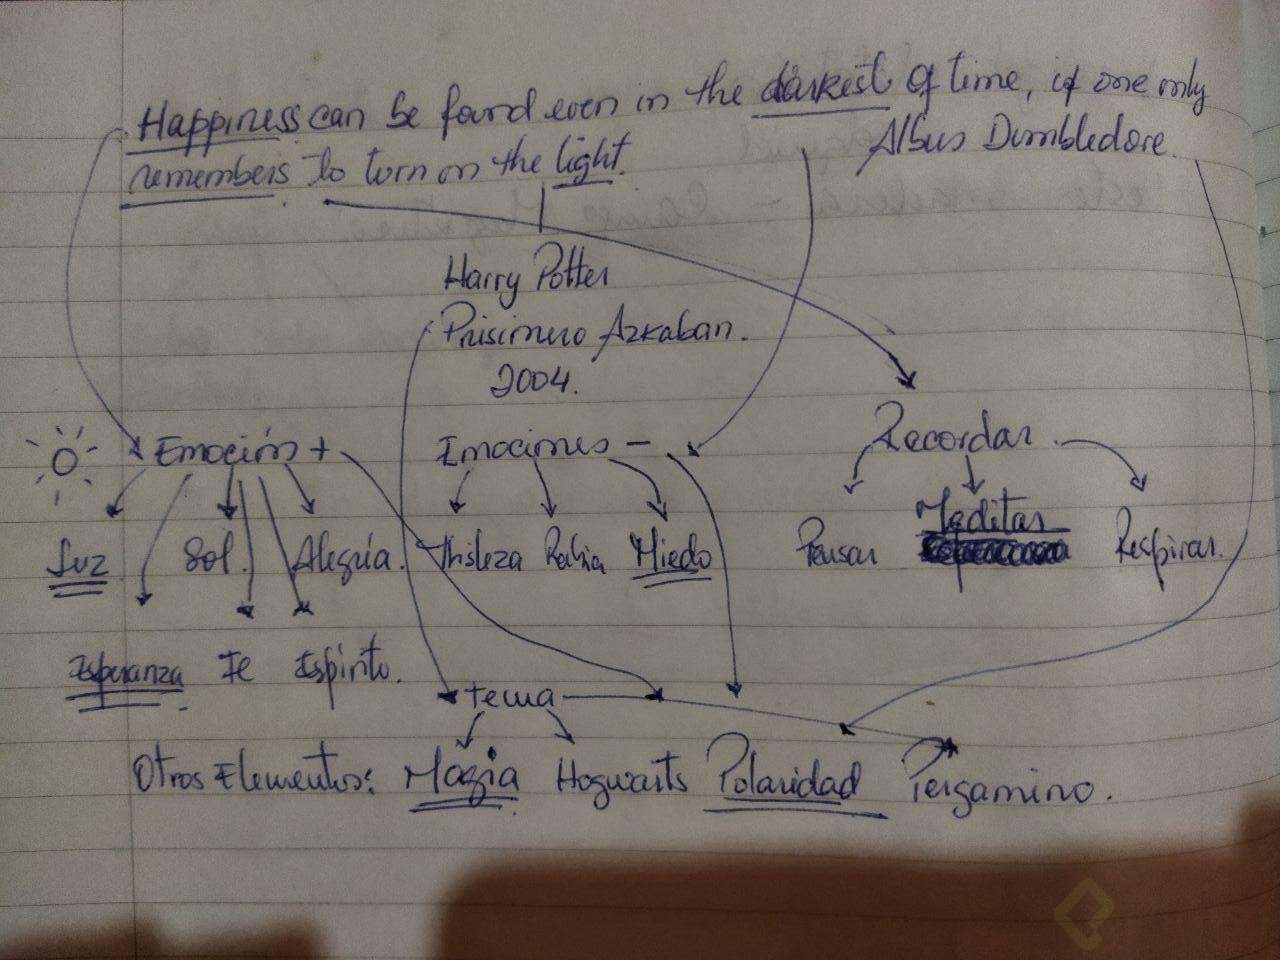 Happiness can be found even in the darkest of time, if one only
remembers to turn on the light.
Albus Dumbledore.
Harry Potter
Prisionero Azkaban.
2004.
Emoción + Emociones - Recordar.
Luz Sol. Alegría. Tristeza Rabia Miedo Pensar Meditar Respirar.
Esperanza Fe Espíritu.
tema
Otros Elementos: Magia Hogwarts Polaridad Pergamino.